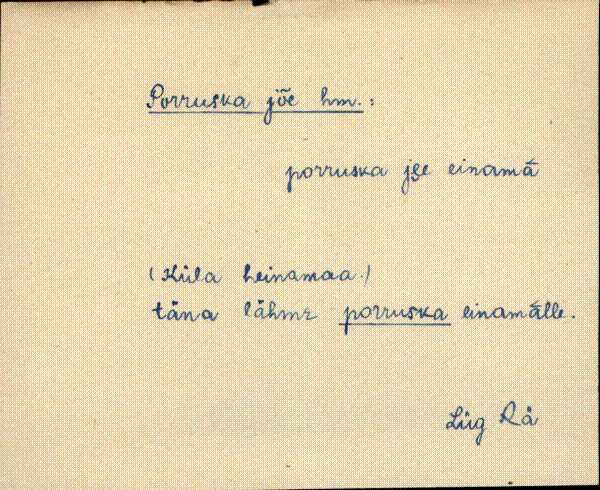 Porruska jõe hm.:
porruska jẹe einamā́
(Küla heinamaa.)
täna lähmɛ porruska einamā́lle.
Lüg Rå